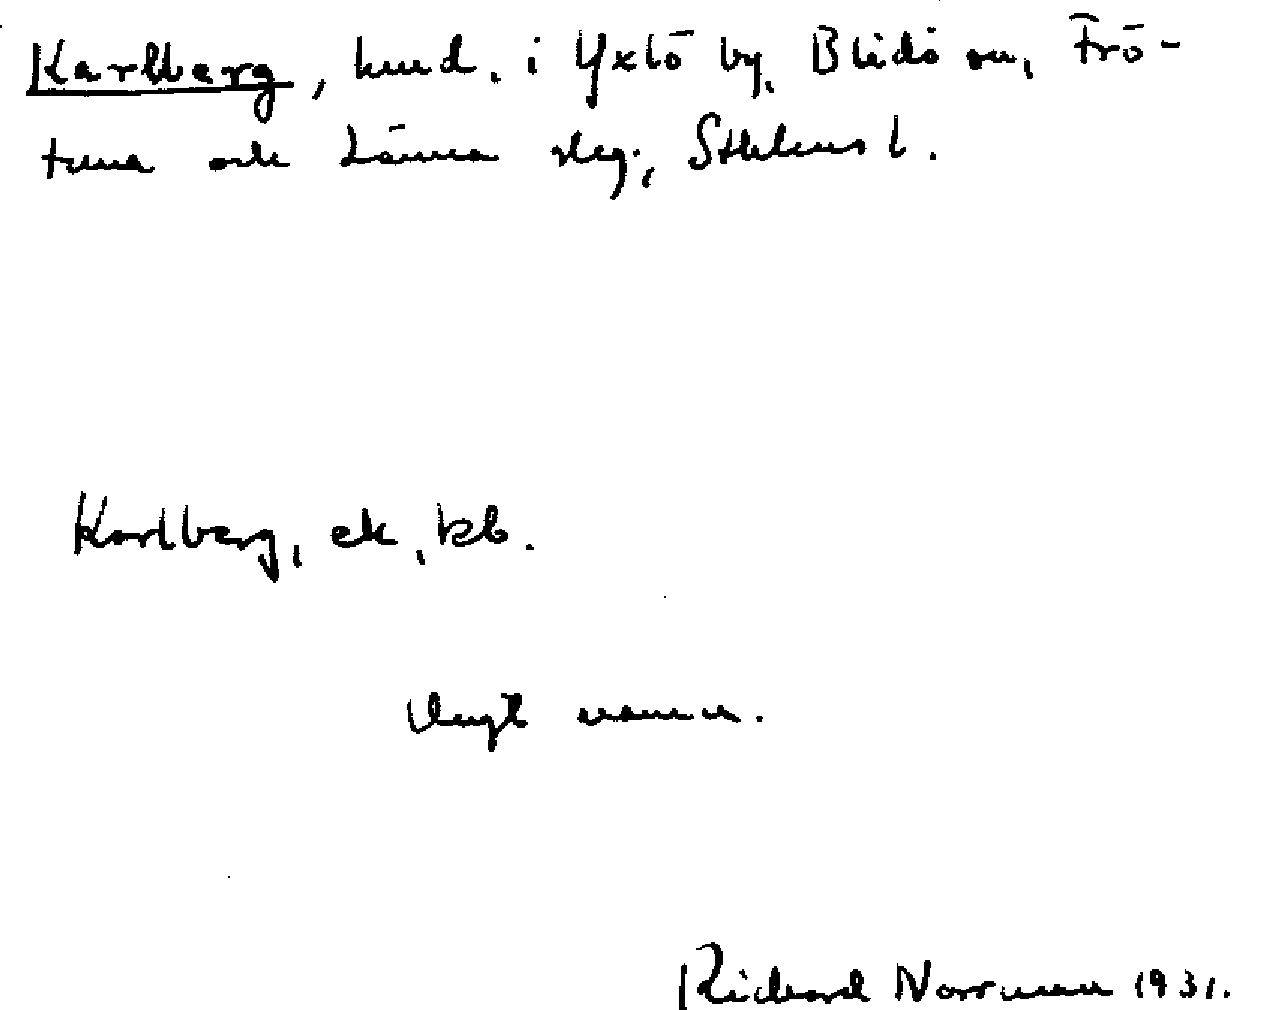 Karlberg, hmd. i Yxlö by, Blidö sn, Frö-
tuna och Länna slg., Sthlms l.
Karlberg, ek, kb.
Ungt namn.
Richard Norrman 1931.